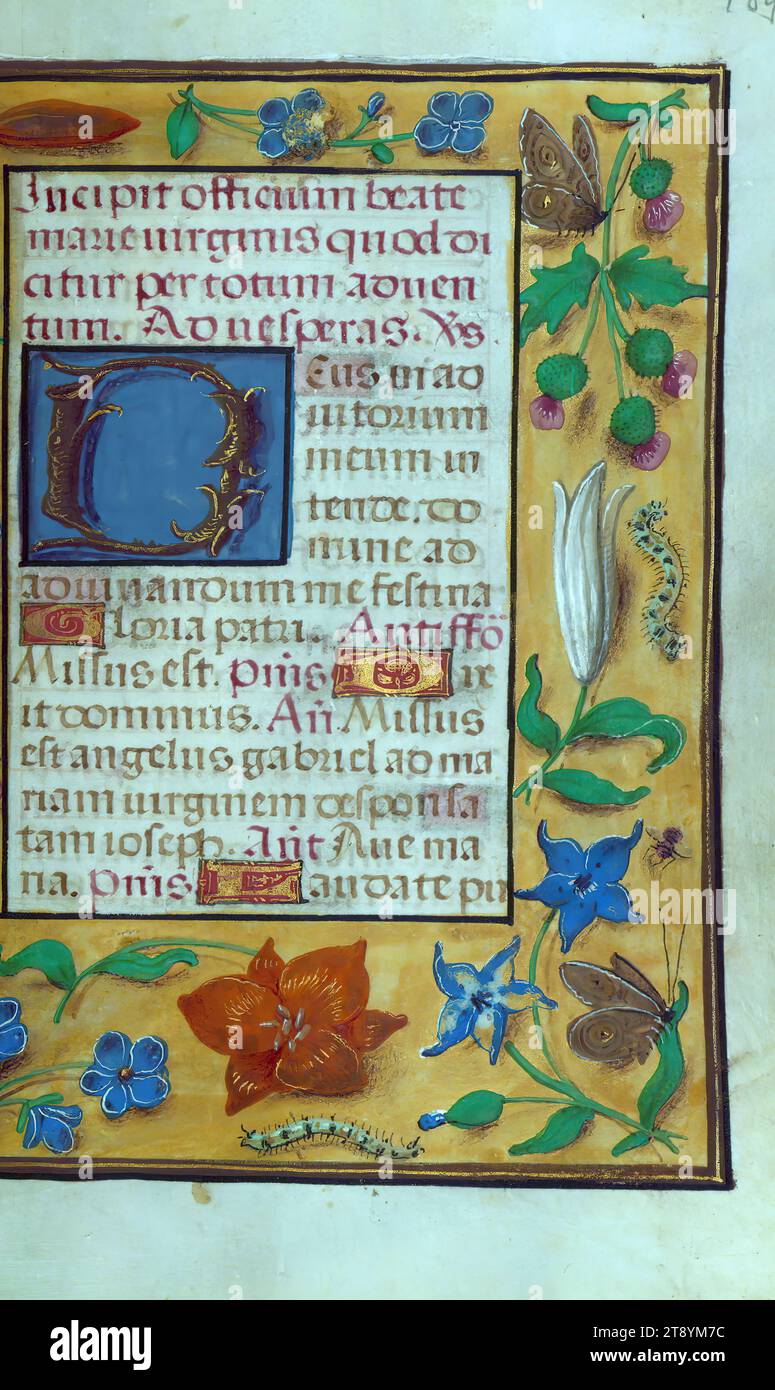 Incipit officium beate
marie uirginis quod di
citur per totum aduen
tum. Ad uesperas. Vs
DEus in ad
iutorium
meum in
tende. do
mine ad
adiuuandum me festina
Gloria patri. Antiffō
Missus est. pūs Dix
it dominus. Añ. Missus
est angelus gabriel ad ma
riam uirginem despon sa
tam ioseph. Añt Aue ma
ria. pūs Laudate pu
alamy
Image ID: 2T8YM7C
www.alamy.com